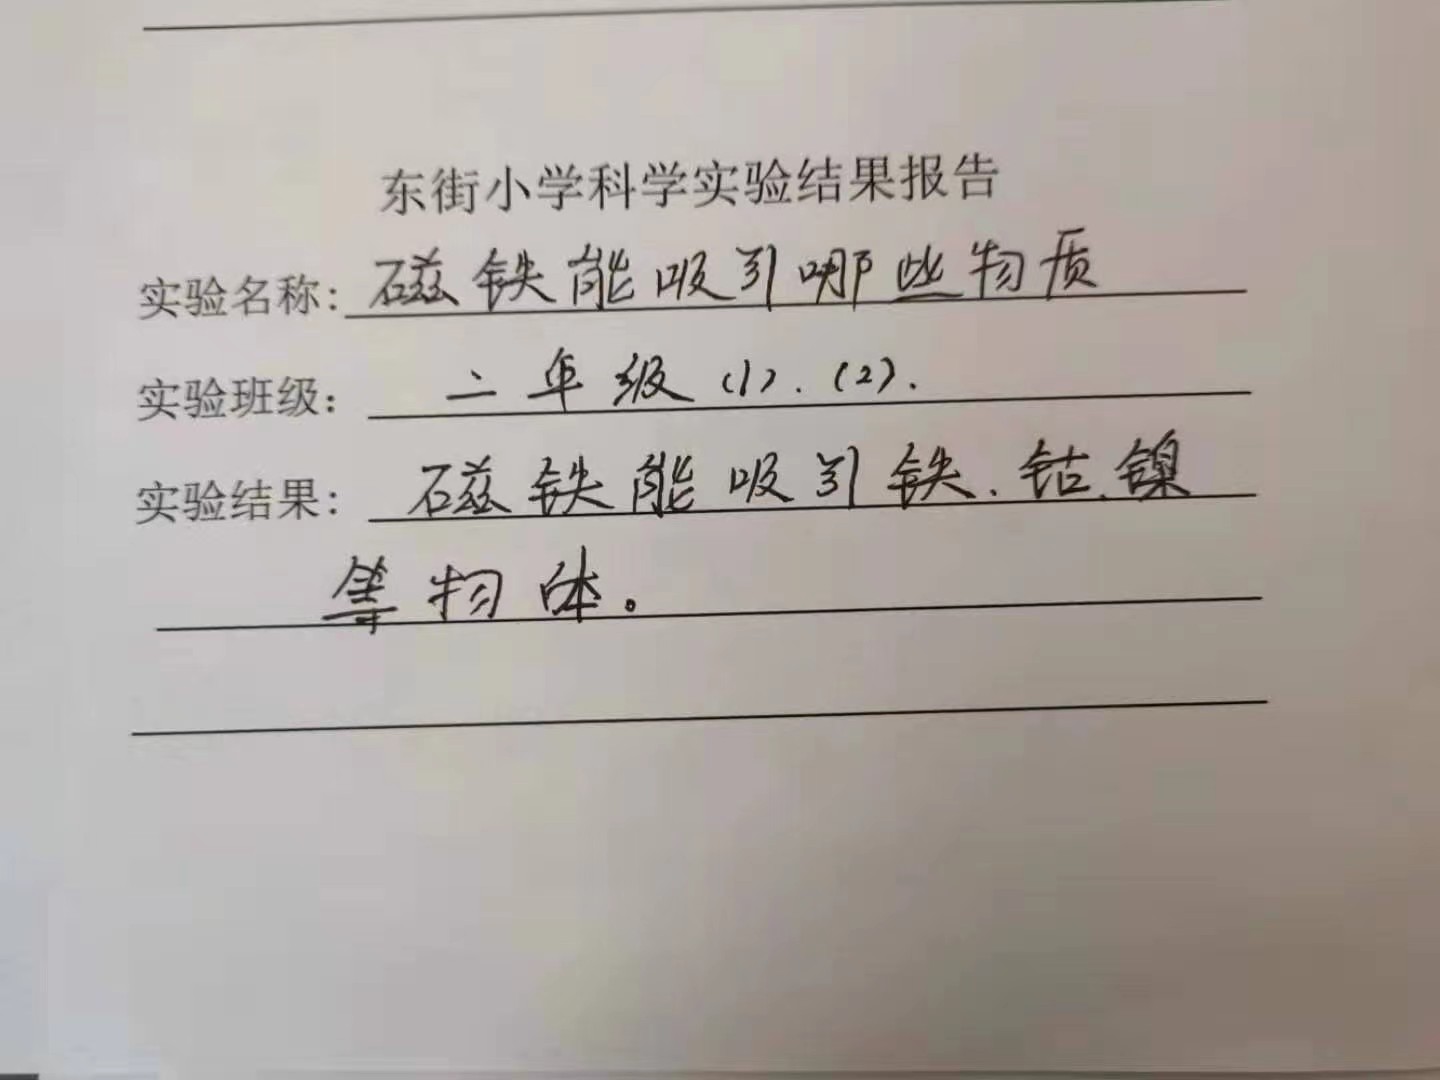 东街小学科学实验结果报告
实验名称：磁铁能吸引哪些物质
实验班级：二年级(1).(2).
实验结果：磁铁能吸引铁、钴、镍
等物体。